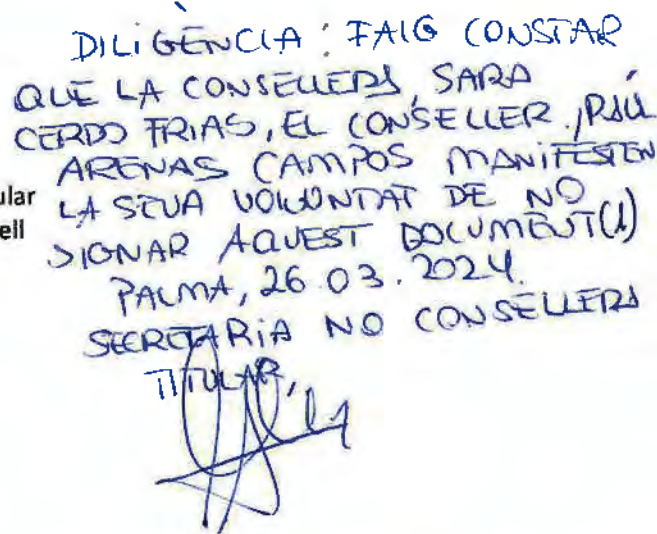 DILIGÈNCIA: FAIG CONSTAR
QUE LA CONSELLERA, SARA
CERDO FRIAS, EL CONSELLER, RAÚL
ARENAS CAMPOS MANIFESTEN
ular LA SEUA VOLUNTAT DE NO
ell SIGNAR AQUEST DOCUMENT(1)
PALMA, 26.03.2024.
SECRETARIA NO CONSELLERA
TITULAR,